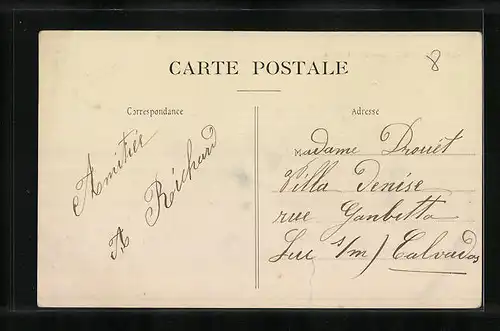 8
CARTE POSTALE
Correspondance
Adresse
Amitiés
A Richard
Madame Drouët
Villa Denise
rue Ganbetta
Luc s/m) Calvados